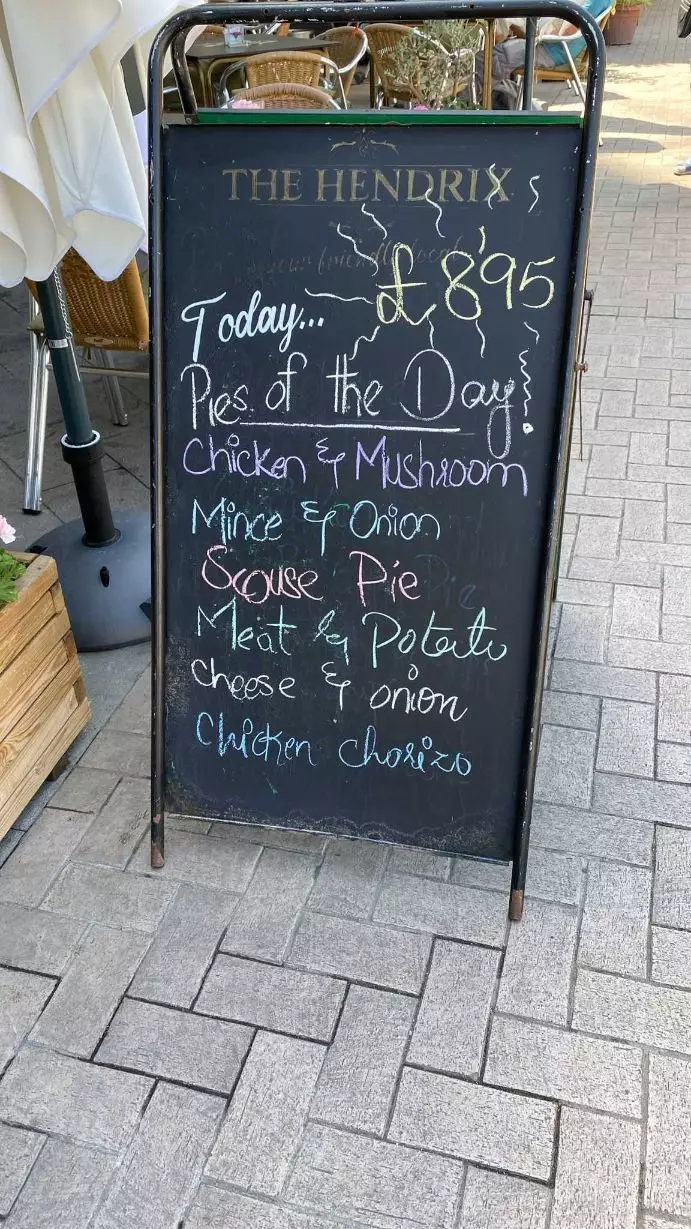 THE HENDRIX
your friendly local
£8'95
Today...
Pies of the Day!
Chicken & Mushroom
Mince & Onion
Scouse Pie
Meat & Potato
cheese & onion
Chicken chorizo